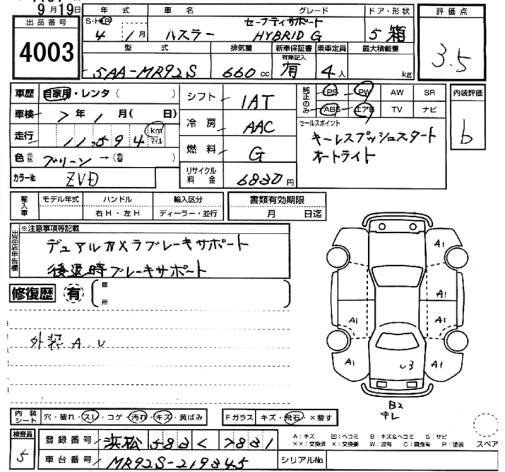 9月19日
出品番号 年式 車名 グレード ドア・形状 評価点
4003
S・H・R 4年 1月 ハスラー セーフティサポート HYBRID G 5 箱 3.5
型式 排気量 新車保証書 乗車定員 最大積載量
有無記入
5AA-MR92S 660cc 有 4人 kg
車歴 自家用・レンタ( ) シフト 1AT 純正のみ PS PW AW SR 内装評価
ABS エアB TV ナビ
車検 7年 1月( 日) 冷房 AAC セールスポイント b
走行 11,594 km マイル キーレスプッシュスタート
オートライト
色 グリーン →( ) 燃料 G
カラー№ ZVD リサイクル料金 6830円
輸入車 モデル年式 ハンドル 輸入区分 書類有効期限
年 右H・左H ディーラー・並行 月 日迄
出品店申告欄 ※注意事項等記載
デュアルカメラブレーキサポート
後退時ブレーキサポート
修復歴 有 箇所
外装 A.U
A1 A1
A1 A1
A1 A1
U3
B2
キレ
内装シート 穴・破れ・スレ・コゲ・汚れ・キズ・黄ばみ Fガラス キズ・飛石・×要す
A:キズ G:凹ヘコミ B:キズ&ヘコミ S:サビ
××:交換済 ×:交換要 W:補修跡 C:腐食 P:塗装 スペア
検査員 5 登録番号 浜松 583 く 7831
車台番号 MR92S-219345 シリアル№